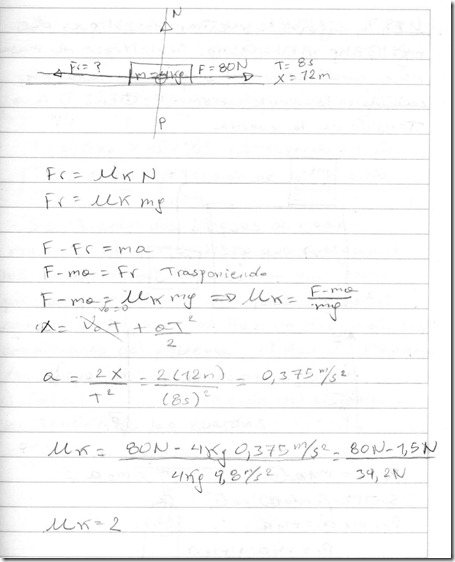 N
Fr = ?
m = 4Kg
F = 80N
T = 8s
X = 12m
P
Fr = μK N
Fr = μK mg
F - Fr = ma
F - ma = Fr Trasponiendo
F - ma = μK mg ⇒ μK = (F - ma)/mg
Vo=0
X = Vo T + aT²/2
a = 2X/T² = 2(12m)/(8s)² = 0,375 m/s²
μK = (80N - 4Kg 0,375 m/s²)/(4Kg 9,8 m/s²) = (80N - 1,5N)/39,2N
μK = 2